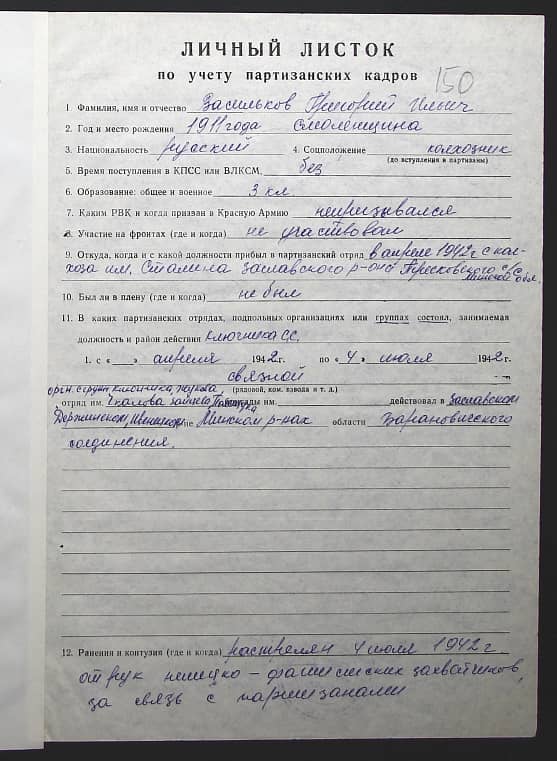 ЛИЧНЫЙ ЛИСТОК
по учету партизанских кадров
150
1. Фамилия, имя и отчество Васильков Григорий Ильич
2. Год и место рождения 1911 года Смоленщина
3. Национальность русский 4. Соцположение колхозник
(до вступления в партизаны)
5. Время поступления в КПСС или ВЛКСМ, без
6. Образование: общее и военное 3 кл
7. Каким РВК и когда призван в Красную Армию непризывался
8. Участие на фронтах (где и когда) не участвовал
9. Откуда, когда и с какой должности прибыл в партизанский отряд в апреле 1942 г с кол-
хоза им. Сталина Заславского р-она с/с
Минской обл.
10. Был ли в плену (где и когда) не был
11. В каких партизанских отрядах, подпольных организациях или группах состоял, занимаемая
должность и район действия Ключника СС.
1. с « » апреля 1942 г. по « 4 » июля 1942 г.
связной
орг. группы Ключника, (рядовой, ком. взвода и т. д.)
отряд им. Чкалова бригады им. действовал в Заславском
Дзержинском, Ивенецком Минском р-нах области Барановичского
соединения.
12. Ранения и контузия (где и когда) растрелян 4 июля 1942 г
от рук немецко-фашистских захватчиков,
за связь с партизанами